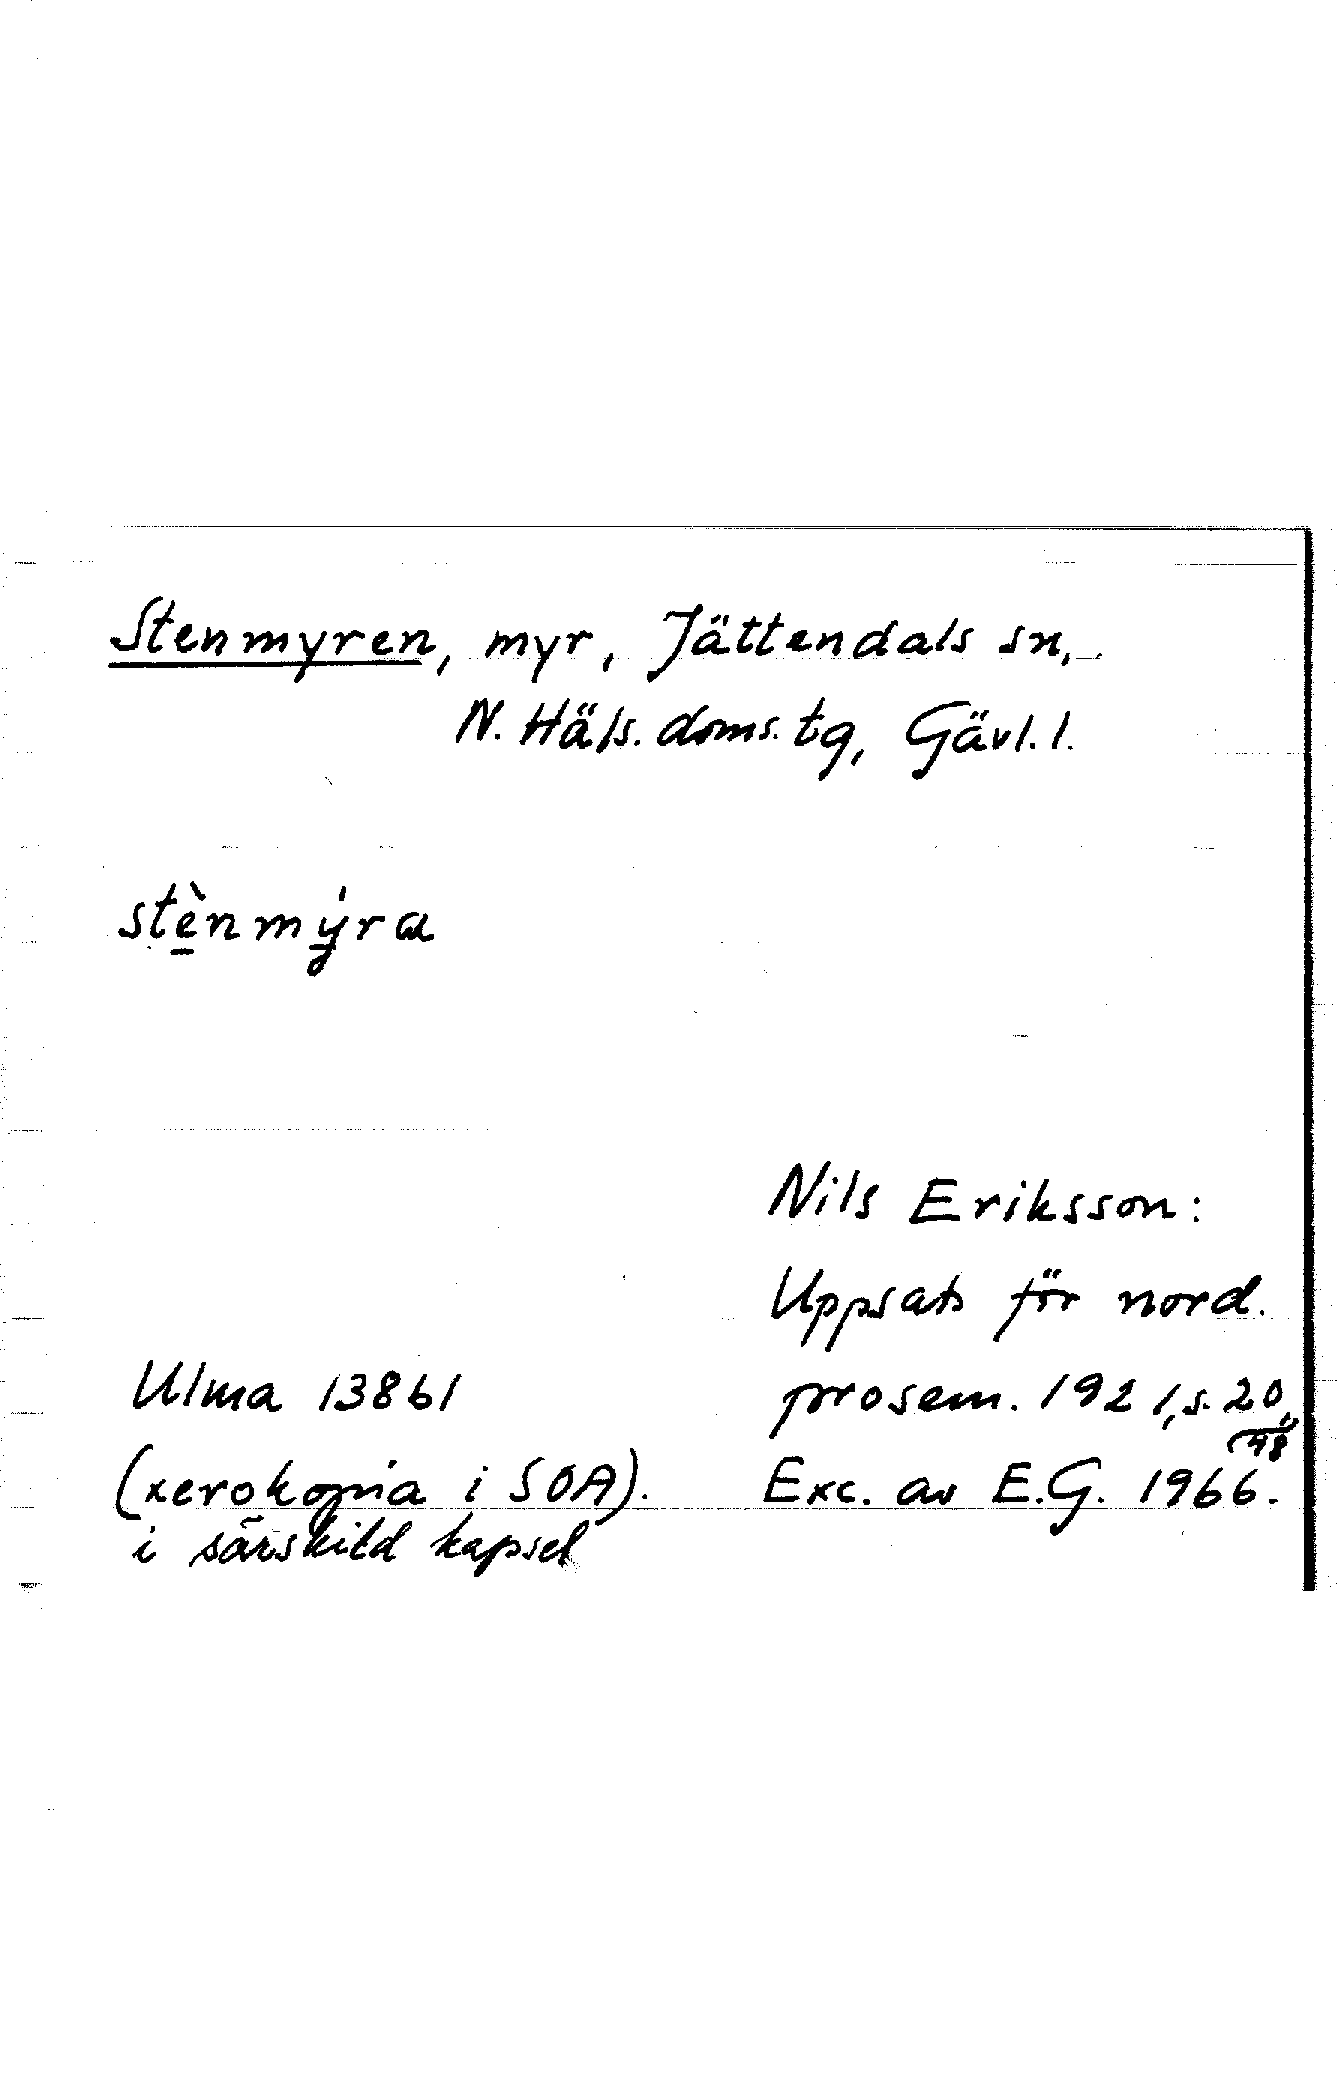 Stenmyren, myr, Jättendals sn,
N. Häls. doms. tg, Gävl. l.
stènmýra
Nils Eriksson:
Uppsats för nord.
prosem. 1921, s. 20,
48
Exc. av E.G. 1966.
Ulma 13861
(xerokopia i SOA).
i särskild kapsel